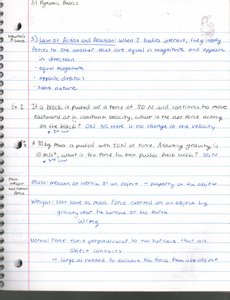 3.1 Dynamic Basics
Newton's
3) Law of Action and Reaction: When 2 bodies interact, they apply
forces to one another that are equal in magnitude and opposite
in direction
- equal magnitude
- opposite direction
- same nature
Ex 1: If a block is pushed at a force of 50N and continues to move
eastward at a constant velocity, what is the net force acting
on the block? ON b/c there is no change in the velocity
A 50kg man is pushed with 50N of force. Assuming gravity is
10 m/s², what is the force the man pushes back with? 50N
3rd Law
Mass,
Weight
and Normal
Force
Mass: measure of inertia of an object → property of the object
Weight: Not same as mass. Force exerted on an object by
gravity near the surface of the earth
W=mg
Normal Force: force perpendicular to the surface that an
object contacts
→ large as needed to balance the force from the object